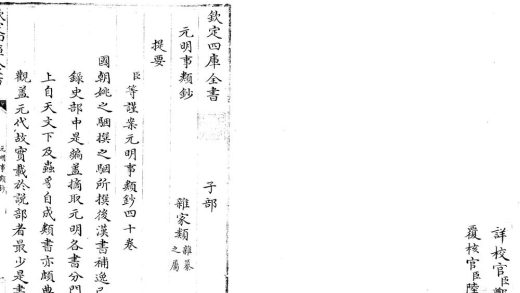 詳校官臣
覆校官臣陸
欽定四庫全書 子部
元明事類鈔 雜家類雜纂之屬
提要
臣等謹案元明事類鈔四十卷
國朝姚之駰撰之駰所撰後漢書補逸已
錄史部中是編蓋摘取元明各書分門
上自天文下及蟲豸自成類書亦頗典
觀蓋元代故實載於說部者最少是書